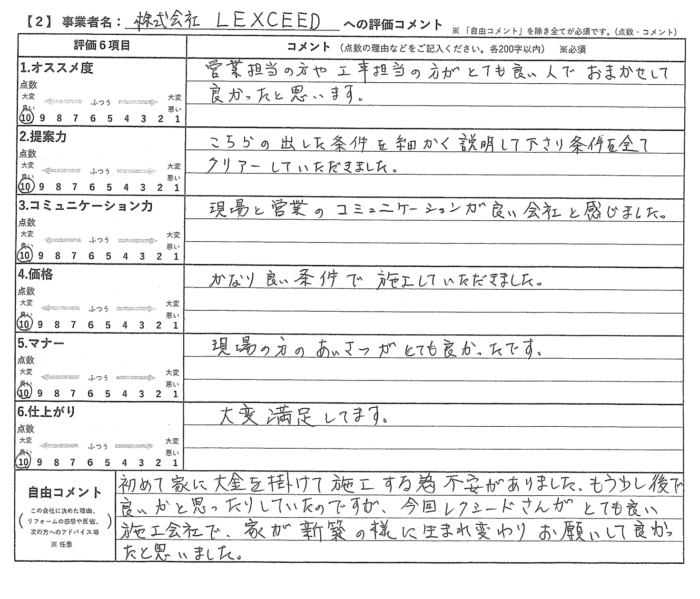 【2】事業者名： 株式会社 LEXCEED への評価コメント ※「自由コメント」を除き全てが必須です。（点数・コメント）
評価6項目 コメント（点数の理由などをご記入ください。各200字以内） ※必須
1.オススメ度 営業担当の方や工事担当の方がとても良い人でおまかせして
点数 良かったと思います。
大変良い ふつう 大変悪い
10 9 8 7 6 5 4 3 2 1
2.提案力 こちらの出した条件を細かく説明して下さり条件を全て
点数 クリアーしていただきました。
大変良い ふつう 大変悪い
10 9 8 7 6 5 4 3 2 1
3.コミュニケーション力 現場と営業のコミュニケーションが良い会社と感じました。
点数
大変良い ふつう 大変悪い
10 9 8 7 6 5 4 3 2 1
4.価格 かなり良い条件で施工していただきました。
点数
大変良い ふつう 大変悪い
10 9 8 7 6 5 4 3 2 1
5.マナー 現場の方のあいさつがとても良かったです。
点数
大変良い ふつう 大変悪い
10 9 8 7 6 5 4 3 2 1
6.仕上がり 大変満足してます。
点数
大変良い ふつう 大変悪い
10 9 8 7 6 5 4 3 2 1
自由コメント
この会社に決めた理由、
リフォームの感想や反省、
次の方へのアドバイス等
※ 任意
初めて家に大金を掛けて施工する為不安がありました、もう少し後で
良いかと思ったりしていたのですが、今回レクシードさんがとても良い
施工会社で、家が新築の様に生まれ変わりお願いして良かっ
たと思いました。